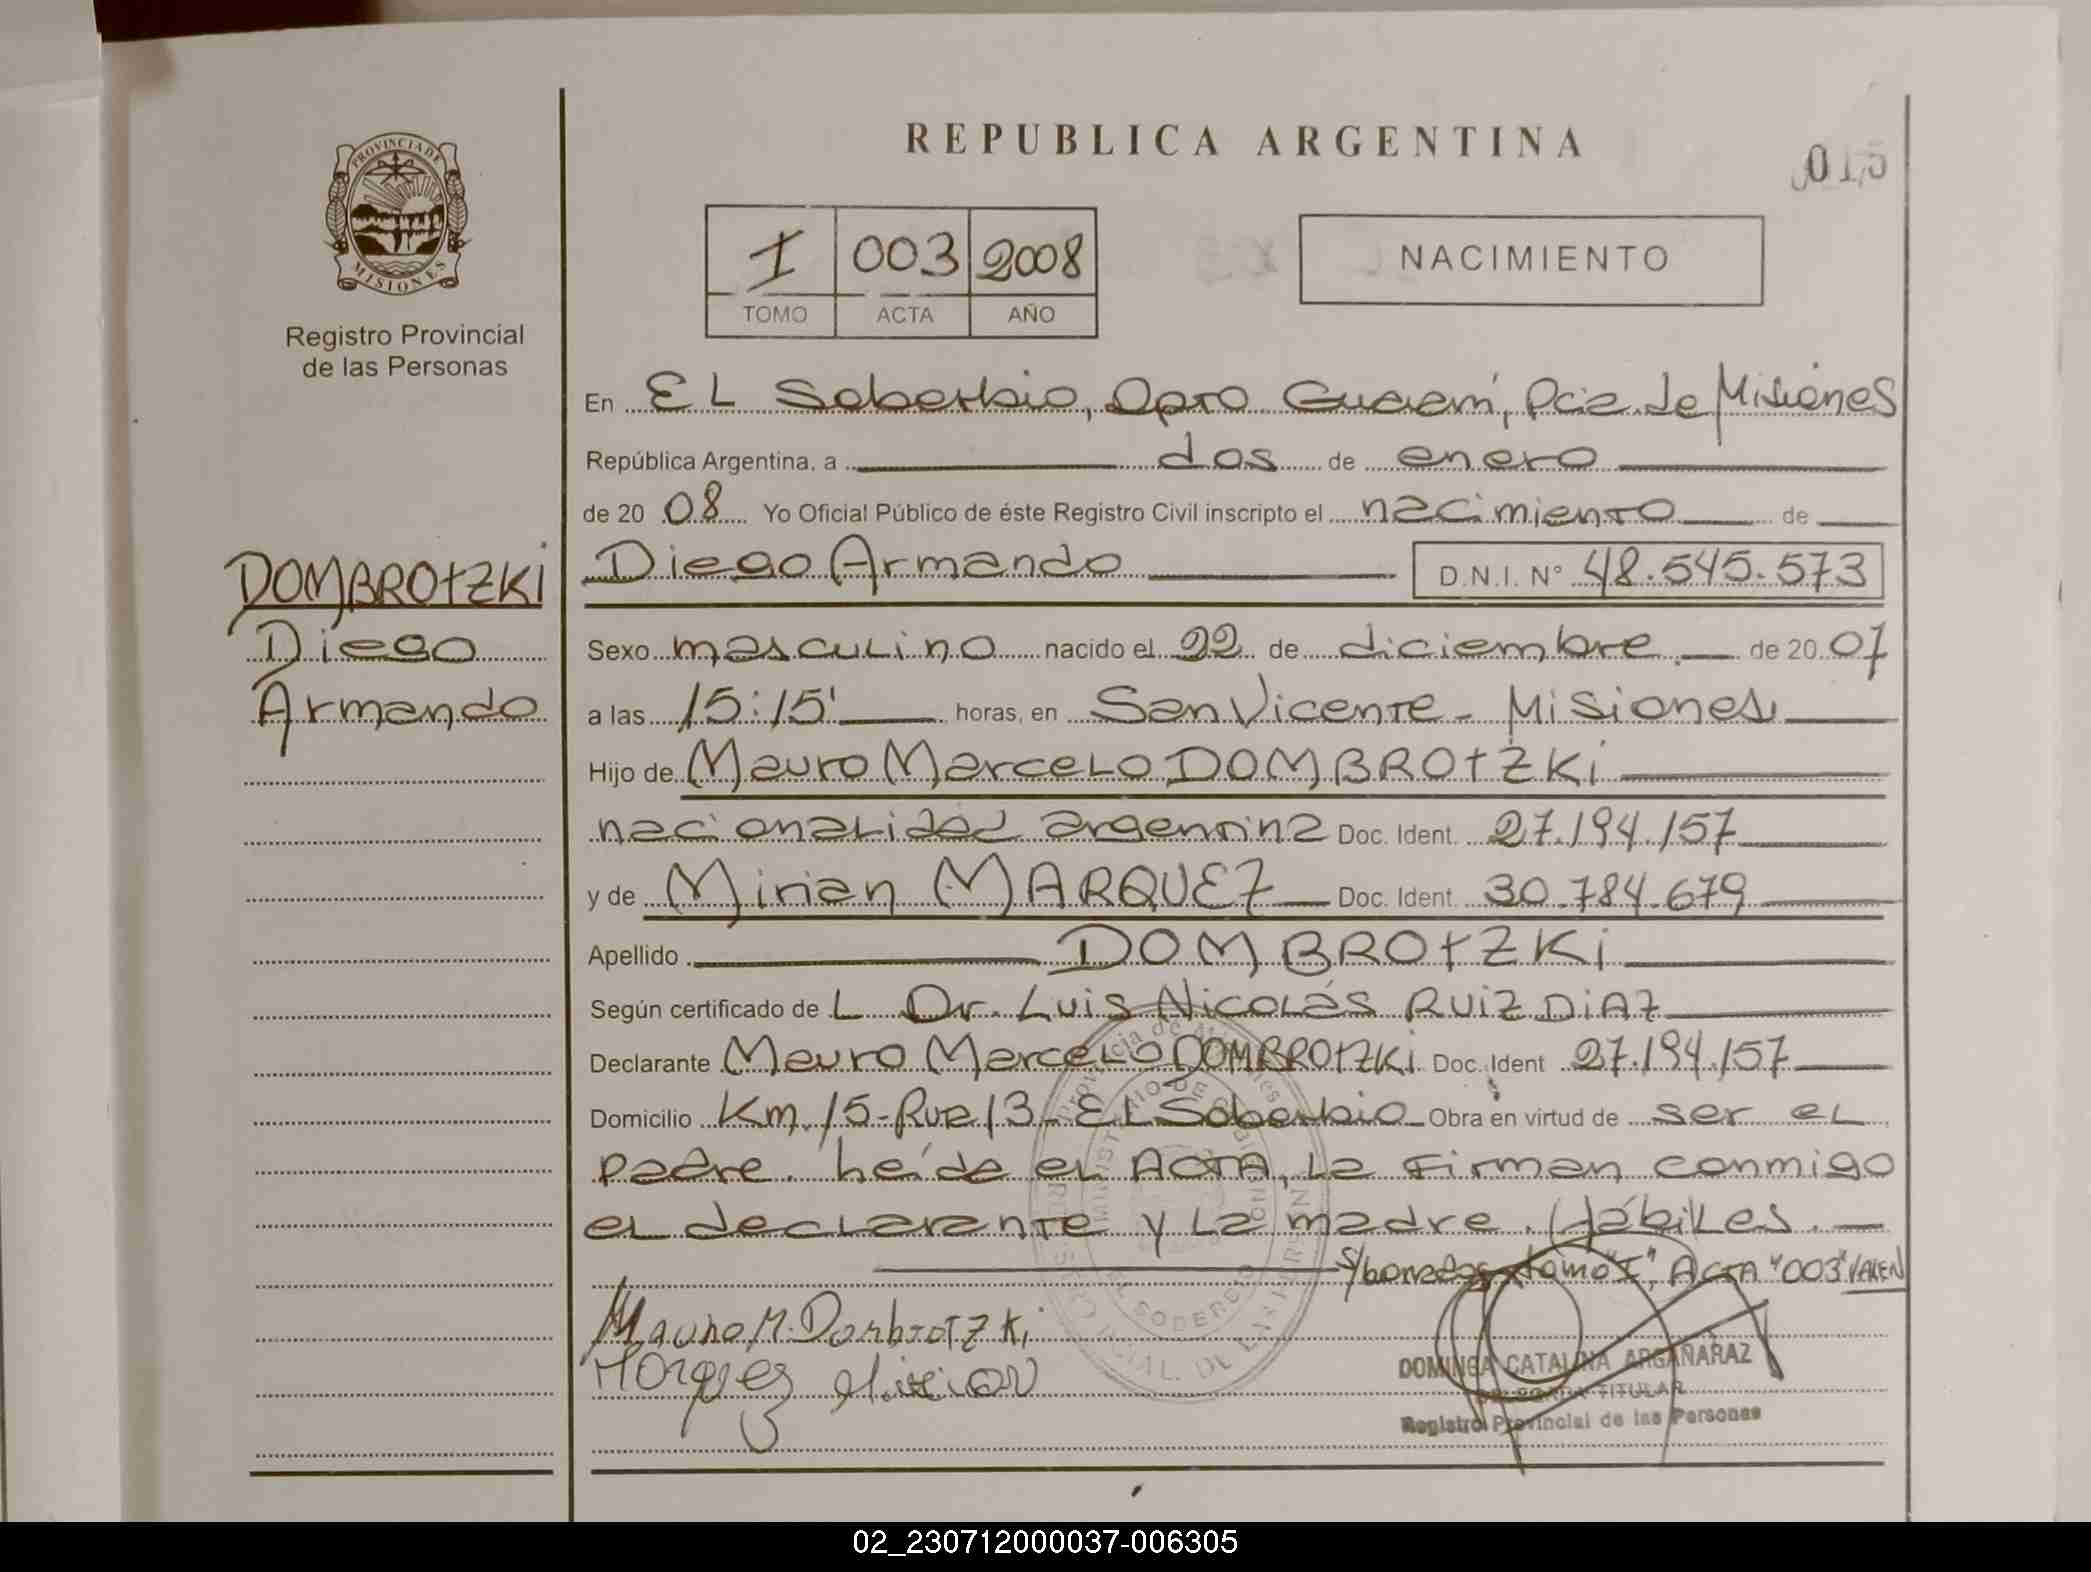 REPUBLICA ARGENTINA
015
PROVINCIA DE MISIONES
Registro Provincial
de las Personas
I 003 2008
TOMO ACTA AÑO
NACIMIENTO
En EL Soberbio, Dpto Guaraní, Pcia de Misiones
República Argentina, a dos de enero
de 20 08 Yo Oficial Público de éste Registro Civil inscripto el nacimiento de
DOMBROTZKI
Diego
Armando
Diego Armando D.N.I. N° 48.545.573
Sexo masculino nacido el 22 de diciembre de 20 07
a las 15:15' horas, en San Vicente - Misiones
Hijo de Mauro Marcelo DOMBROTZKI
nacionalidad argentina Doc. Ident. 27.194.157
y de Mirian MARQUEZ Doc. Ident. 30.784.679
Apellido DOMBROTZKI
Según certificado de L Dr. Luis Nicolás RUIZ DIAZ
Declarante Mauro Marcelo DOMBROTZKI Doc. Ident 27.194.157
Domicilio Km. 15-Ruta 13- EL Soberbio Obra en virtud de ser el
padre. heída el ACTA, la firman conmigo
el declarante y la madre. Hábiles.-
S/borrados "tomo "I", ACTA "003" VALEN
Mauro M. Dombrotzki
Marquez Mirian
DOMINGA CATALINA ARGAÑARAZ
DELEGADA TITULAR
Registro Provincial de las Personas
02_230712000037-006305